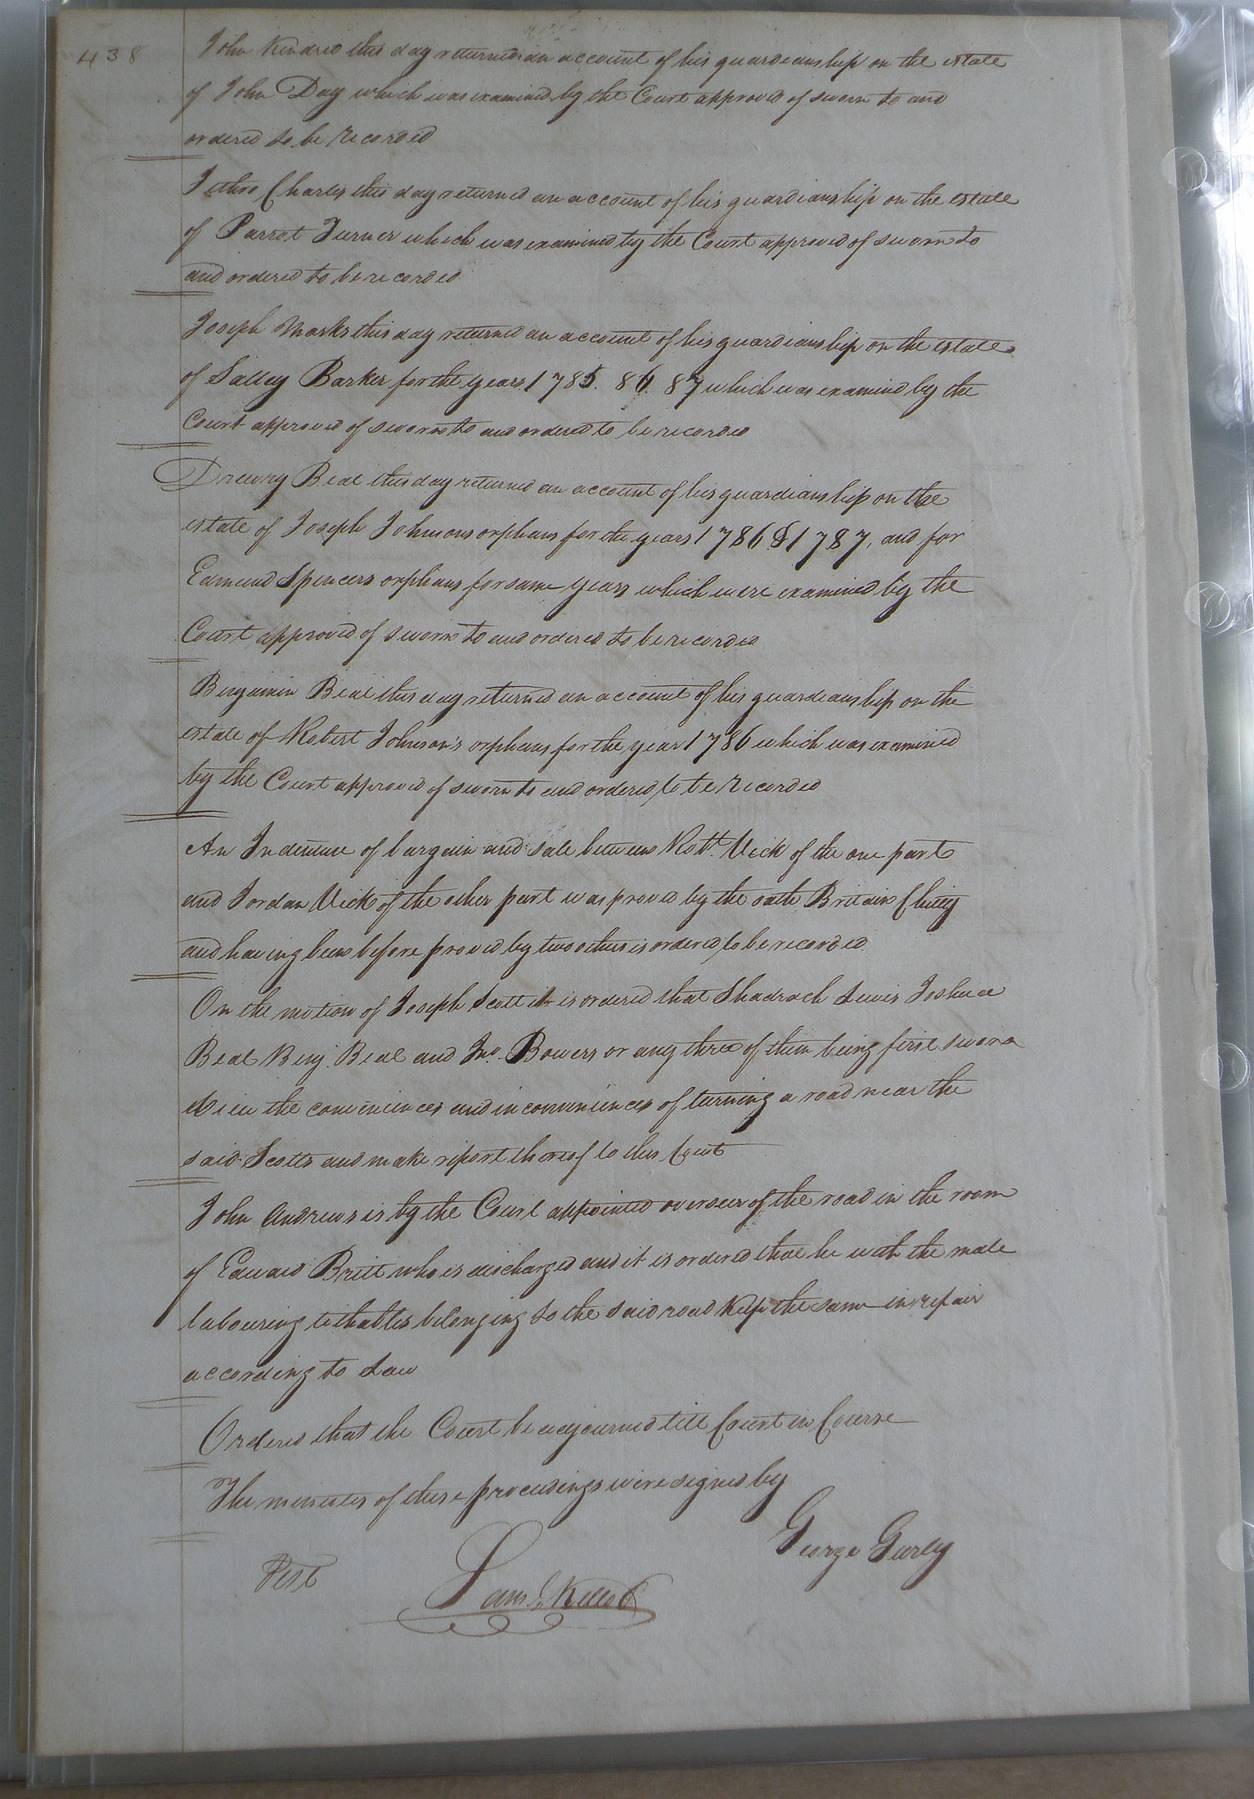 438
John Kindred this day returned an account of his guardianship on the estate
of John Day which was examined by the Court approved of sworn to and
ordered to be recorded
Jethro Charles this day returned an account of his guardianship on the estate
of Parrot Turner which was examined by the Court approved of sworn to
and ordered to be recorded
Joseph Marks this day returned an account of his guardianship on the estate
of Salley Barker for the years 1785. 86. 87 which was examined by the
Court approved of sworn to and ordered to be recorded
Drewry Beal this day returned an account of his guardianship on the
estate of Joseph Johnsons orphans for the years 1786 & 1787, and for
Edmund Spencers orphans for same years which were examined by the
Court approved of sworn to and ordered to be recorded
Benjamin Beal this day returned an account of his guardianship on the
estate of Robert Johnson's orphans for the year 1786 which was examined
by the Court approved of sworn to and ordered to be recorded
An Indenture of bargain and sale between Robt. Vick of the one part
and Jordan Vick of the other part was proved by the oath Britain
and having been before proved by two others is ordered to be recorded
On the motion of Joseph Scott it is ordered that Shadrach Lewis Joshua
Beal Benj. Beal and Jno. Bowers or any three of them being first sworn
view the conveniences and inconveniences of turning a road near the
said Scotts and make report thereof to this Court
John Andrews is by the Court appointed overseer of the road in the room
of Edward Britt who is discharged and it is ordered that he with the male
labouring tithables belonging to the said road keep the same in repair
according to Law
Ordered that the Court be adjourned till Court in Course
The minutes of these proceedings were signed by
George Gurley
Test
Saml. Kello